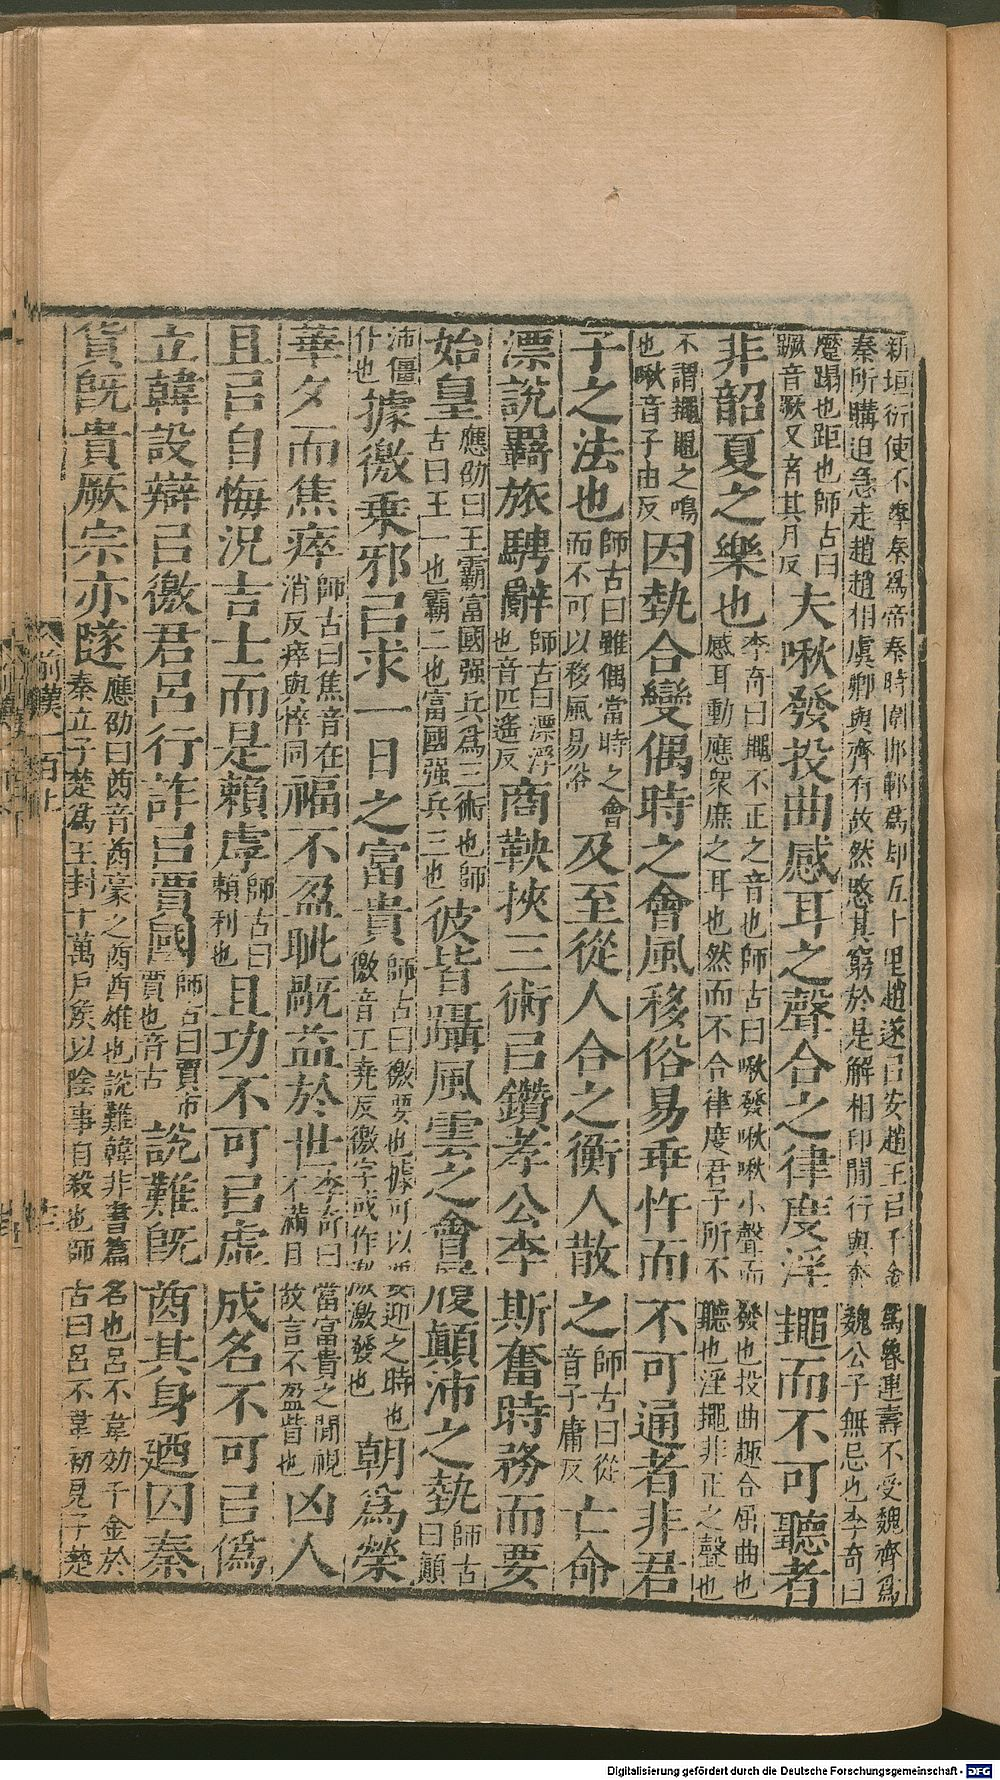 新垣衍使不尊秦爲帝秦時圍邯鄲爲却五十里趙遂㠯安趙王㠯千金爲魯連壽不受魏齊爲
秦所購迫急走趙趙相虞卿與齊有故然愍其窮於是解相印閒行與奔魏公子無忌也李奇曰
蹷蹋也距也師古曰
蹶音厥又音其月反
夫啾發投曲感耳之聲合之律度淫䵷而不可聽者
非韶夏之樂也
李奇曰䵷不正之音也師古曰啾發啾啾小聲而發也投曲趣合屈曲也
感耳動應衆庶之耳也然而不合律度君子所不聽也淫䵷非正之聲也
不謂䵷黽之鳴
也啾音子由反
因埶合變偶時之會風移俗易乖忤而不可通者非君
子之法也
師古曰雖偶當時之會
而不可以移風易俗
及至從人合之衡人散之
師古曰從
音子庸反
亡命
漂說羇旅騁辭
師古曰漂浮
也音匹遙反
商鞅挾三術㠯鑽孝公李斯奮時務而要
始皇
應劭曰王霸富國强兵爲三術也師
古曰王一也霸二也富國强兵三也
彼皆躡風雲之會履顛沛之埶
師古
曰顛
沛僵
仆也
據徼乘邪㠯求一日之富貴
師古曰徼要也據可以要迎之時也
徼音工堯反徼字或作激激發也
朝爲榮
華夕而焦瘁
師古曰焦音在
消反瘁與悴同
福不盈眦旤益於世
李奇曰當富貴之閒視
不滿目故言不盈眥也
凶人
且㠯自悔況吉士而是賴虖
師古曰
賴利也
且功不可㠯虛成名不可㠯僞
立韓設辯㠯徼君呂行詐㠯賈國
師古曰賈市
賈也音古
說難旣酋其身廼囚秦
貨旣貴厥宗亦隧
應劭曰酋音酋豪之酋酋雄也說難韓非書篇名也呂不韋効千金於
秦立子楚爲王封十萬戶侯以陰事自殺也師古曰呂不韋初見子楚
前漢一百上
Digitalisierung gefördert durch die Deutsche Forschungsgemeinschaft - DFG